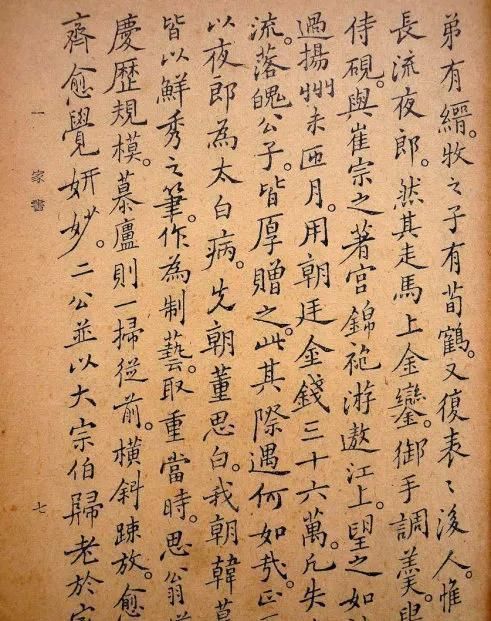 弟有縉。牧之子有荀鶴。又復表〻後人。惟
長流夜郎。然其走馬上金鑾。御手調羹。
侍硯。與崔宗之著宮錦袍游遨江上。望之如
過揚州未匝月。用朝廷金錢三十六萬。凡失
流。落魄公子。皆厚贈之。此其際遇何如哉。正
以夜郎為太白病。先朝董思白。我朝韓慕
皆以鮮秀之筆。作為制藝。取重當時。思翁
慶歷規模。慕廬則一掃從前。橫斜踈放。愈
齊愈覺妍妙。二公並以大宗伯歸老於
一 家書 七